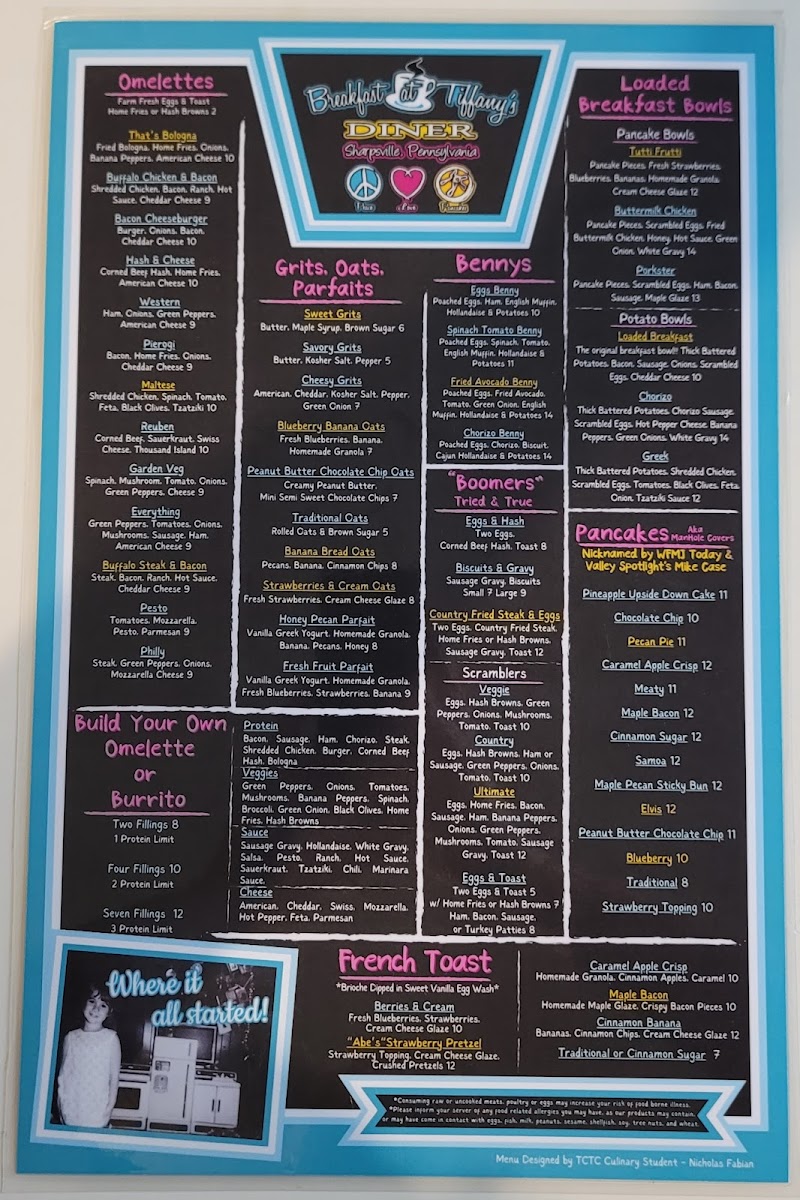 Breakfast at Tiffany's
DINER
Sharpsville, Pennsylvania
Omelettes
Farm Fresh Eggs & Toast
Home Fries or Hash Browns 2
That's Bologna
Fried Bologna, Home Fries, Onions,
Banana Peppers, American Cheese 10
Buffalo Chicken & Bacon
Shredded Chicken, Bacon, Ranch, Hot
Sauce, Cheddar Cheese 9
Bacon Cheeseburger
Burger, Onions, Bacon,
Cheddar Cheese 10
Hash & Cheese
Corned Beef Hash, Home Fries,
American Cheese 10
Western
Ham, Onions, Green Peppers,
American Cheese 9
Pierogi
Bacon, Home Fries, Onions,
Cheddar Cheese 9
Maltese
Shredded Chicken, Spinach, Tomato,
Feta, Black Olives, Tzatziki 10
Reuben
Corned Beef, Sauerkraut, Swiss
Cheese, Thousand Island 10
Garden Veg
Spinach, Mushroom, Tomato, Onions,
Green Peppers, Cheese 9
Everything
Green Peppers, Tomatoes, Onions,
Mushrooms, Sausage, Ham,
American Cheese 9
Buffalo Steak & Bacon
Steak, Bacon, Ranch, Hot Sauce,
Cheddar Cheese 9
Pesto
Tomatoes, Mozzarella,
Pesto, Parmesan 9
Philly
Steak, Green Peppers, Onions,
Mozzarella Cheese 9
Grits, Oats,
Parfaits
Sweet Grits
Butter, Maple Syrup, Brown Sugar 6
Savory Grits
Butter, Kosher Salt, Pepper 5
Cheesy Grits
American, Cheddar, Kosher Salt, Pepper,
Green Onion 7
Blueberry Banana Oats
Fresh Blueberries, Banana,
Homemade Granola 7
Peanut Butter Chocolate Chip Oats
Creamy Peanut Butter,
Mini Semi Sweet Chocolate Chips 7
Traditional Oats
Rolled Oats & Brown Sugar 5
Banana Bread Oats
Pecans, Banana, Cinnamon Chips 8
Strawberries & Cream Oats
Fresh Strawberries, Cream Cheese Glaze 8
Honey Pecan Parfait
Vanilla Greek Yogurt, Homemade Granola,
Banana, Pecans, Honey 8
Fresh Fruit Parfait
Vanilla Greek Yogurt, Homemade Granola,
Fresh Blueberries, Strawberries, Banana 9
Bennys
Eggs Benny
Poached Eggs, Ham, English Muffin,
Hollandaise & Potatoes 10
Spinach Tomato Benny
Poached Eggs, Spinach, Tomato,
English Muffin, Hollandaise &
Potatoes 11
Fried Avocado Benny
Poached Eggs, Fried Avocado,
Tomato, Green Onion, English
Muffin, Hollandaise & Potatoes 14
Chorizo Benny
Poached Eggs, Chorizo, Biscuit,
Cajun Hollandaise & Potatoes 14
"Boomers"
Tried & True
Eggs & Hash
Two Eggs,
Corned Beef Hash, Toast 8
Biscuits & Gravy
Sausage Gravy, Biscuits
Small 7 Large 9
Country Fried Steak & Eggs
Two Eggs, Country Fried Steak,
Home Fries or Hash Browns,
Sausage Gravy, Toast 12
Scramblers
Veggie
Eggs, Hash Browns, Green
Peppers, Onions, Mushrooms,
Tomato, Toast 10
Country
Eggs, Hash Browns, Ham or
Sausage, Green Peppers, Onions,
Tomato, Toast 10
Ultimate
Eggs, Home Fries, Bacon,
Sausage, Ham, Banana Peppers,
Onions, Green Peppers,
Mushrooms, Tomato, Sausage
Gravy, Toast 12
Eggs & Toast
Two Eggs & Toast 5
w/ Home Fries or Hash Browns 7
Ham, Bacon, Sausage,
or Turkey Patties 8
Loaded
Breakfast Bowls
Pancake Bowls
Tutti Frutti
Pancake Pieces, Fresh Strawberries,
Blueberries, Bananas, Homemade Granola,
Cream Cheese Glaze 12
Buttermilk Chicken
Pancake Pieces, Scrambled Eggs, Fried
Buttermilk Chicken, Honey, Hot Sauce, Green
Onion, White Gravy 14
Porkster
Pancake Pieces, Scrambled Eggs, Ham, Bacon,
Sausage, Maple Glaze 13
Potato Bowls
Loaded Breakfast
The original breakfast bowl!! Thick Battered
Potatoes, Bacon, Sausage, Onions, Scrambled
Eggs, Cheddar Cheese 10
Chorizo
Thick Battered Potatoes, Chorizo Sausage,
Scrambled Eggs, Hot Pepper Cheese, Banana
Peppers, Green Onions, White Gravy 14
Greek
Thick Battered Potatoes, Shredded Chicken,
Scrambled Eggs, Tomatoes, Black Olives, Feta,
Onion, Tzatziki Sauce 12
Pancakes Aka ManHole Covers
Nicknamed by WFMJ Today &
Valley Spotlight's Mike Case
Pineapple Upside Down Cake 11
Chocolate Chip 10
Pecan Pie 11
Caramel Apple Crisp 12
Meaty 11
Maple Bacon 12
Cinnamon Sugar 12
Samoa 12
Maple Pecan Sticky Bun 12
Elvis 12
Peanut Butter Chocolate Chip 11
Blueberry 10
Traditional 8
Strawberry Topping 10
Build Your Own
Omelette
or
Burrito
Two Fillings 8
1 Protein Limit
Four Fillings 10
2 Protein Limit
Seven Fillings 12
3 Protein Limit
Protein
Bacon, Sausage, Ham, Chorizo, Steak,
Shredded Chicken, Burger, Corned Beef
Hash, Bologna
Veggies
Green Peppers, Onions, Tomatoes,
Mushrooms, Banana Peppers, Spinach,
Broccoli, Green Onion, Black Olives, Home
Fries, Hash Browns
Sauce
Sausage Gravy, Hollandaise, White Gravy,
Salsa, Pesto, Ranch, Hot Sauce,
Sauerkraut, Tzatziki, Chili, Marinara
Sauce,
Cheese
American, Cheddar, Swiss, Mozzarella,
Hot Pepper, Feta, Parmesan
Where it
all started!
French Toast
*Brioche Dipped in Sweet Vanilla Egg Wash*
Berries & Cream
Fresh Blueberries, Strawberries,
Cream Cheese Glaze 10
"Abe's"Strawberry Pretzel
Strawberry Topping, Cream Cheese Glaze,
Crushed Pretzels 12
Caramel Apple Crisp
Homemade Granola, Cinnamon Apples, Caramel 10
Maple Bacon
Homemade Maple Glaze, Crispy Bacon Pieces 10
Cinnamon Banana
Bananas, Cinnamon Chips, Cream Cheese Glaze 12
Traditional or Cinnamon Sugar 7
*Consuming raw or uncooked meats, poultry or eggs may increase your risk of food borne illness.
*Please inform your server of any food related allergies you may have, as our products may contain,
or may come in contact with eggs, fish, milk, peanuts, sesame, shellfish, soy, tree nuts, and wheat.
Menu Designed by TCTC Culinary Student - Nicholas Fabian